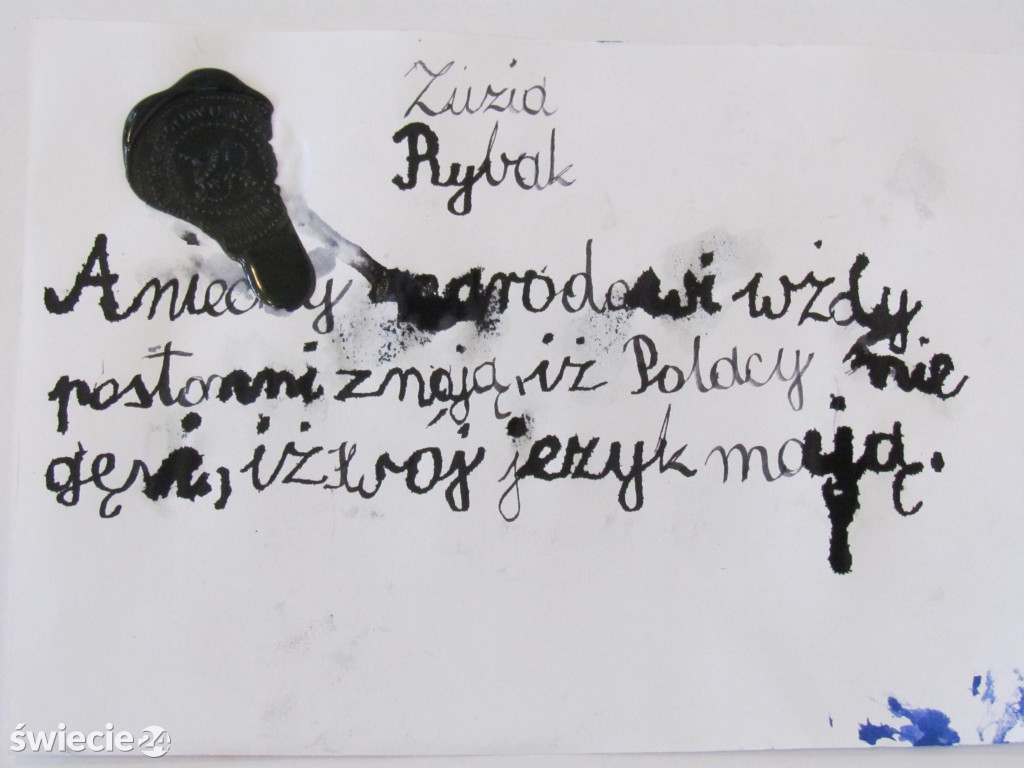 Zuzia
Rybak
A niechaj narodowi wżdy
postonni znają, iż Polacy nie
gęsi, iż swój jezyk mają.
świecie24